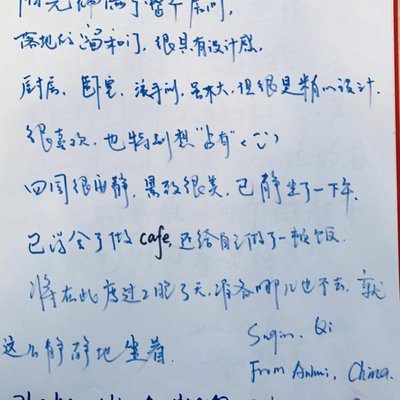 阳光洒满了整个房间,
落地的窗和门,很具有设计感,
厨房、卧室、洗手间,虽不大,但很是精心设计.
很喜欢,也特别想"占有"
四周很安静,景致很美,已静坐了一下午,
已学会了做 cafe, 还给自己做了一顿饭.
将在此度过2晚3天,准备哪儿也不去,就
这么静静地坐着.
Qi
From Anhui, China.